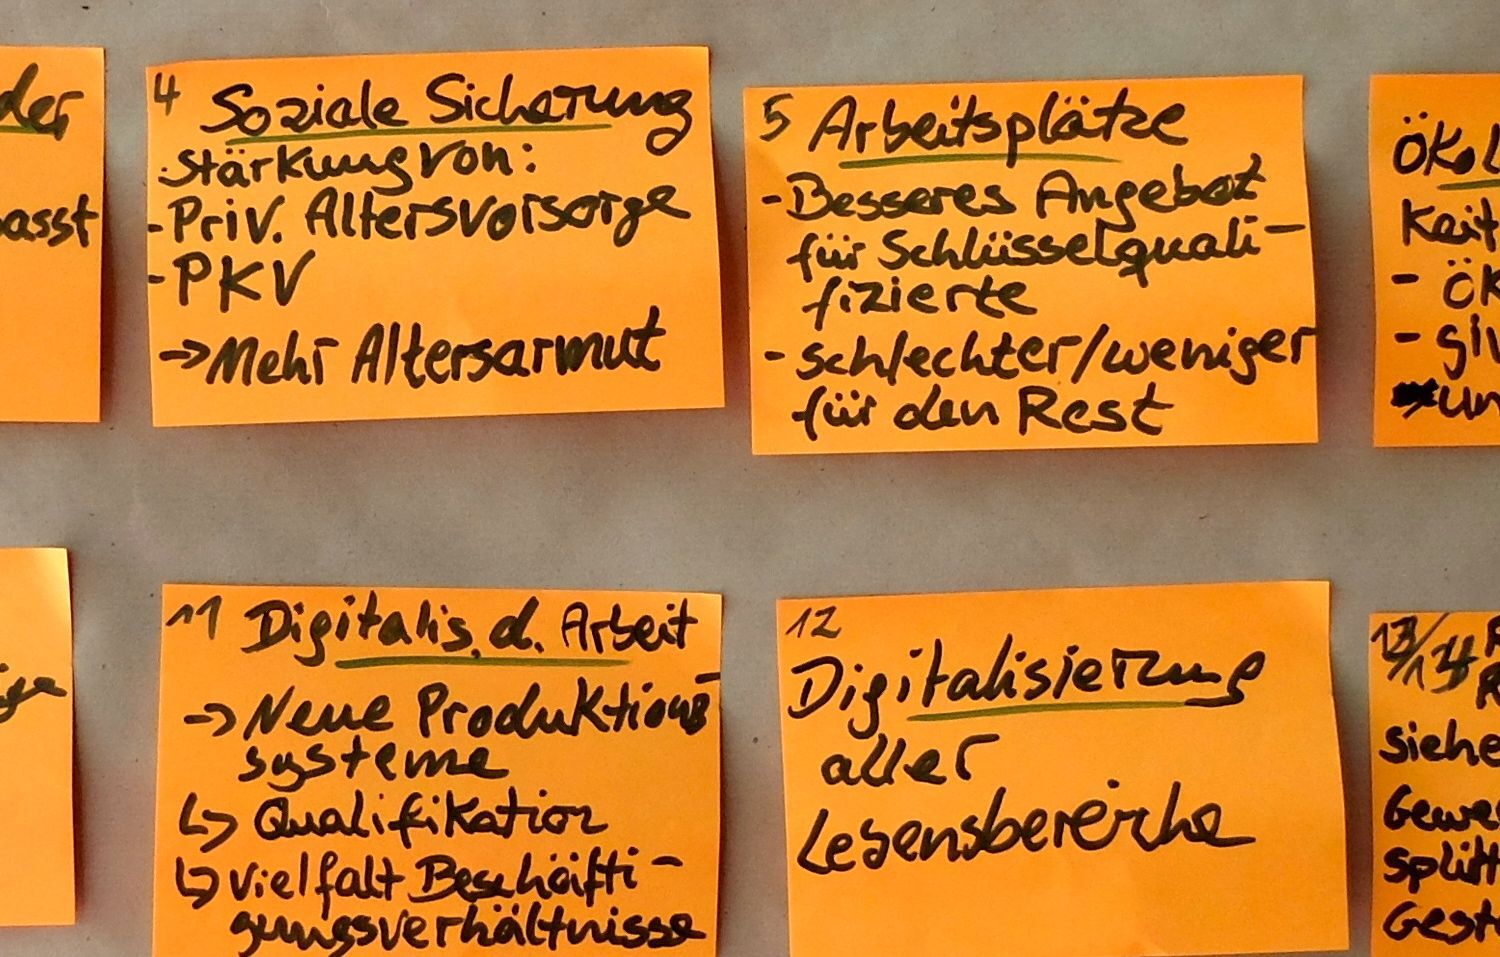 der
passt
4 Soziale Sicherung
Stärkung von:
- Priv. Altersvorsorge
- PKV
→ Mehr Altersarmut
5 Arbeitsplätze
- Besseres Angebot
für Schlüsselquali-
fizierte
- schlechter/weniger
für den Rest
Öko
Keit
- ÖK
- giv
un
11 Digitalis. d. Arbeit
→ Neue Produktions-
systeme
↳ Qualifikation
↳ Vielfalt Beschäfti-
gungsverhältnisse
12
Digitalisierung
aller
Lebensbereiche
13/14 R
R
siehe
Gewe
splitt
Gest